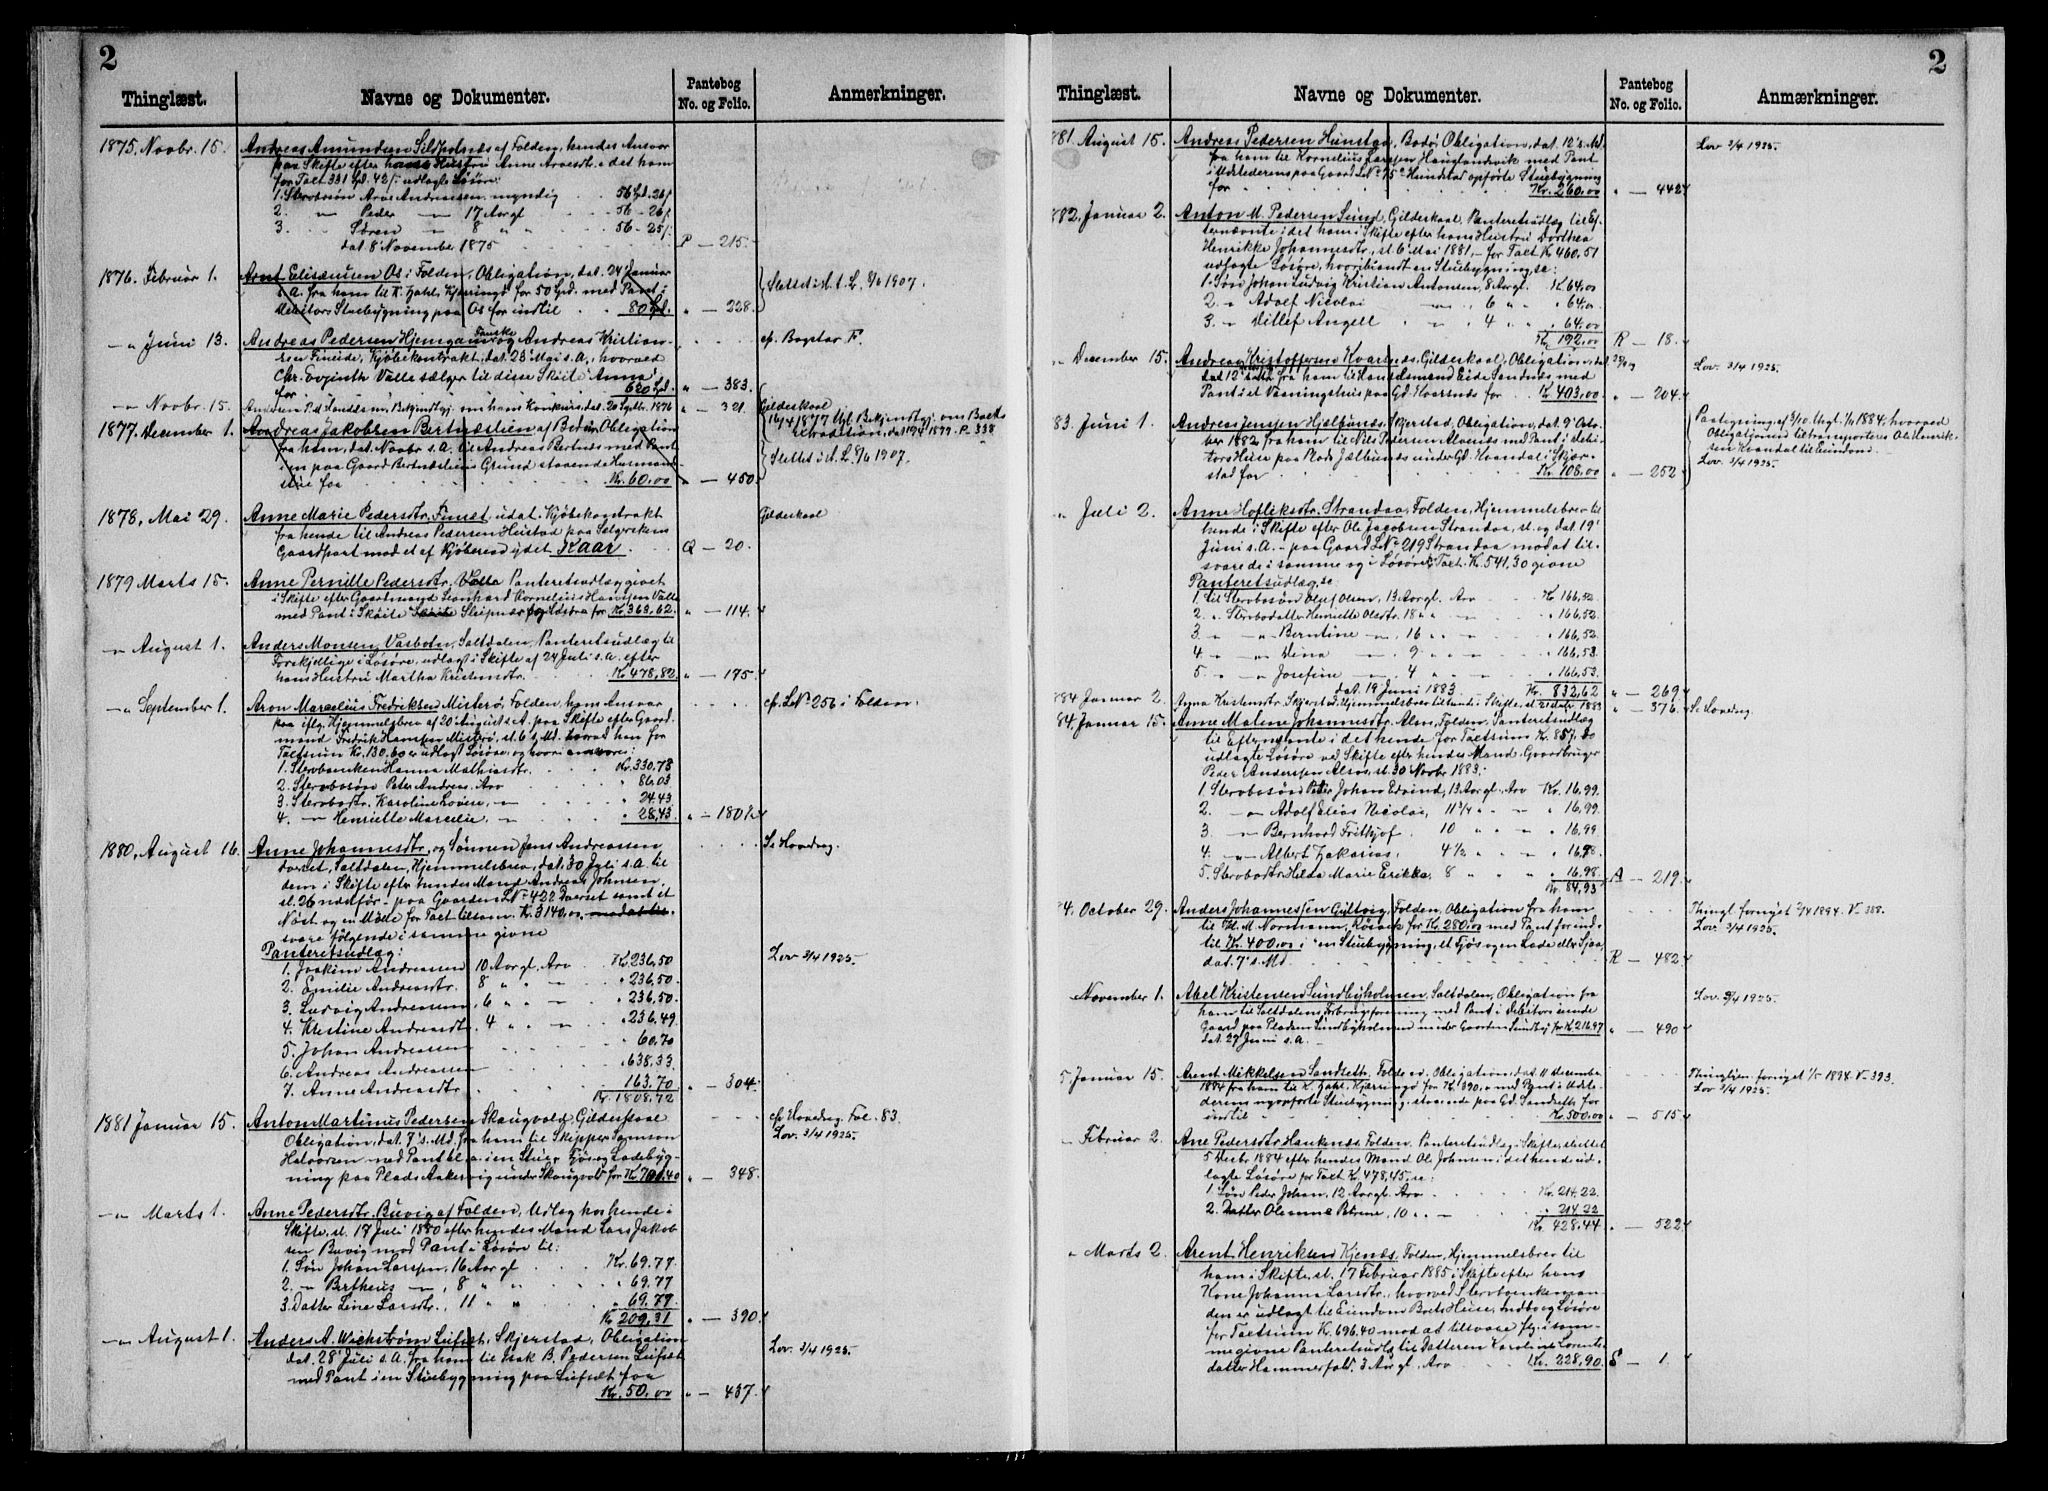 2
Thinglæst.
Navne og Dokumenter.
Pantebog
No. og Folio.
Anmerkninger.
1875, Novbr. 15. Andreas Amundsen Sildholnæs af Folden, hendes Ansvar
paa Skifte efter hans Hustru Anne Arvesdtr. e det ham
for Taxt 331 Spd. 42/- udlagte Løsøre:
1. Stervbsøn Arve Andreassen, myndig . . 56 Spd. 26/
2. – " – Peder – " – 17 Aargl . . 56 - 26/
3. – " – Søren – " – 8 " " . . 56 - 25/
dat 8 November 1875 P — 215.
1876. Februar 1. Arnt Eliseussen Os i Folden, Obligation, dat. 24 Januar
s. A. fra ham til K. Zahl, Kjerringø for 50 Spd. med Pant i
Debitors Stuebygning paa Os for indtil . . 80 Spd. " — 228. Slettet ifl. t. L. 8/6 1907.
– " – Juni 13. Andreas Pedersen Hjemgam Fauske og Andreas Kristian-
sen Fineide, Kjøbekontrakt, dat. 23 Mai s. A., hvorved
Chr. Evjenth Valle sælger til disse Skøite "Anna"
for 620 Spd. " — 383. cf. Bogstav F.
– " – Novbr. 15. Andersen P. d. Handelsm., Bekjendtgj. om hans Konkurs, dat. 20 Septbr. 1876 " — 321. Gildeskaal
16/4 1877 Thgl. Bekjendtgj. om Boets
Extradition, dat. 19/4 1877. P — 338
1877. December 1. Andreas Jakobsen Bertnæslien af Bodin, Obligation
fra ham, dat. Novbr s. A. til Andreas Bertnes med Pant
i en paa Gaard Bertnæsliens Grund staaende Husmand-
stue for . . Kr. 60.00 " — 450. Slettet ifl. L. 8/6 1907.
1878, Mai 29. Anne Marie Pedersdtr. Finset, udat. Kjøbekontrakt
fra hende til Andreas Pedersen Hustad paa Sælgerskens
Gaardpart mod et af Kjøberen ydet Kaar. Q — 20. Gildeskaal
1879 Marts 15. Anne Pernille Pedersdtr, Valle Panteretsudlæg givet
i Skifte efter Gaardmand Leonhard Kornelius Hanssen Valle
med Pant i Skøite Sleipner og Løsøre for Kr. 363.62. " — 114.
– " – August 1. Anders Monsen Vasbotn, Saltdalen, Panteretsudlæg til
Forskjellige i Løsøre, udlagt i Skifte af 24 Juli s. A. efter
hans Hustru Martha Kristensdtr. Kr. 478,82 " — 175.
– " – September 1. Aron Marcelius Fredriksen Misterø, Folden, hans Ansvar
paa iflg. Hjemmelsbrev af 20 August s. A. paa Skifte efter Gaard-
mand Fredrik Hanssen Misterø, sl. 6 s. Md. hvorved han for
Taxtsum Kr. 130.60 er udlagt Løsøre, og hvori ansvares:
1. Stervbenken Hanna Mathiasdtr. Kr. 330.78
2. Stervbosøn Peter Andreas, Arv " 86.03
3. Stervbodtr. Karoline Lovise, – " – " 24.43
4. – " – Henriette Marcelie, – " – " 28,43. " — 180½ cf. L.№ 256 i Folden.
1880, August 16. Anne Johannesdtr, og Sønnen Jens Andreassen
Dverset, Saltdalen, Hjemmelsbrev, dat. 30 Juli s. A. til
dem i Skifte efter hendes Mand Andreas Johnsen
sl. 26 næstfør – paa Gaarden L.№ 422 Dverset samt et
Nøst og en Mølle for Taxt tilsam. Kr. 3140,00, mod at til-
svare følgende i samme givne
Panteretsudlæg:
1. Joakim Andreassen 10 Aargl, Arv Kr. 236,50
2. Emilie Andreasdtr. 8 " " – " – " 236,50.
3. Ludvig Andreassen, 6 " " – " – " 236,50.
4. Kristine Andreasdtr. 4 " " – " – " 236.49.
5. Johan Andreassen " 60.70
6. Andreas Andreassen " 638.33
7. Anne Andreasdtr. 163.70
Kr. 1808.72 " — 304. Se Hovedreg.
Lov 3/4 1925.
1881 Januar 15. Anton Martinus Pedersen Skaugvold, Gildeskaal
Obligation, dat. 7 s. Md. fra ham til Skipper Samson
Halvorsen med Pant bl. a. i en Stue, Fjøs og Ladebyg-
ning paa Plads Aakervig under Skaugvold for Kr. 701.40 " — 348. cf. Hovedreg. Fol. 83.
Lov. 3/4 1925.
– " – Marts 1. Anne Pedersdtr. Buvig af Folden, Udlæg hos hende i
Skifte, sl. 17 Juli 1880 efter hendes Mand Lars Jakob-
sen Buvig med Pant i Løsøre til:
1. Søn Johan Larssen, 16 Aargl Kr. 69.77
2. – " – Bertheus – " –, 8 " " " 69.77
3. Datter Line Larsdtr., 11 " " " 69.77.
Kr 209,31 " — 390.
– " – August 1. Anders A. Wachstrøm Leifset, Skjerstad, Obligation
dat. 28 Juli s. A. fra ham til Isak B. Pedersen Leifset
med Pant i en Stuebygning paa Leifset for
Kr. 50.00 " — 437. Lov. 3/4 1925.
2
Thinglæst.
Navne og Dokumenter.
Pantebog
No. og Folio.
Anmærkninger.
881 August 15. Andreas Pedersen Hunstad, Bodø, Obligation, dat. 12 s. Md.
fra ham til Kornelius Larssen Hauglandsvik med Pant
i Udstederens paa Gaard L№ 75a Hunstad opførte Stuebygning
for Kr. 260.00 " — 442 Lov 3/4 1925.
882, Januar 2. Anton M. Pedersen Sund, Gildeskaal, Panteretsudlæg til Ef-
ternævnte i det ham i Skifte efter hans Hustru Dorthea
Henrikke Johannesdtr., sl. 6 Mai 1881, – for Taxt Kr. 460,51
udlagte Løsøre, hvoriblandt en Stuebygning, se:
1. Søn Johan Ludvig Kristian Antonsen, 8 Aargl. Kr 64.00
2. " Adolf Nicolai – " – 6 " " " 64.00
3. – " Ditlef Angell " " 4 " " " 64.00
Kr. 192.00 R — 18.
" December 15. Andreas Kristoffersen Kvarsnæs, Gildeskaal, Obligation
dat 12 fra ham til Handelsmand Eide Sandnæs med
Pant i et Vaaningshus paa Gd. Kvarsnæs for Kr. 403.00 " — 204. Lov. 3/4 1925.
83. Juni 1. Andreas Jensen Hjælbunes, Skjerstad, Obligation, dat. 9 Octo-
ber 1882 fra ham til Nils Pedersen Alvenes med Pant i debi-
tors Huse paa Plads Jælbunes under Gd. Kvandal i Skjær-
stad for Kr. 108.00 " — 252 Paategning af 3/10 thgl. 1/11 1884, hvorved
Obligationen er transporteret Ole Henrik-
sen Kvandal til Eiendom.
Lov 3/4 1925.
" Juli 2. Anne Hofliksdtr. Strandaa, Folden, Hjemmelsbrev til
hende i Skifte efter Ole Jacobsen Strandaa, sl. og dat. 19
Juni s. A. – paa Gaard L№ 219 Strandaa mod at til-
svare de i samme og i Løsøre, Taxt. Kr. 541,30 givne
Panteretsudlæg, se
1. til Stervbosøn Oluf Olsen, 13 Aargl. Arv Kr 166,52.
2. " Stervbodatter Henriette Olsdtr. 18 " " – " – " 166,52.
3. " – " – Berntine – " – 16 " " – " – " 166,52
4. " – " – Dina – " – 9 " " – " – " 166,53.
5. " – " – Josefine – " – 4 " 166,53.
dat. 19 Juni 1883. Kr. 832,62 " — 269
884 Januar 2. Agna Kristensdtr. Skjerstad, Hjemmelsbrev til hende i Skifte, sl. 21 Decbr. 1883 " — 376. Se Hovedreg.
84, Januar 15. Anne Malene Johannesdtr. Alsos, Folden, Panteretsudlæg
til Efternævnte i det hende for Taxtsum Kr. 857.50
udlagte Løsøre ved Skifte efter hendes Mand Gaardbruger
Peder Anderssen Alsos, sl. 30 Novbr 1883:
1. Stervbosøn Peder Johan Edvind, 13 Aargl. Arv Kr. 16.99.
2. – " – Adolf Elias Nicolai, 11 3/4 " " – " – " 16,99
3. – " – Bernhard Fritkjof. 10 " " " 16,99
4. – " – Albert Zakarias, 4½ " " " 16,98
5. Stervbodtr Hilda Marie Erikka, 8 " " " 16,98
Kr. 84,93 A — 219
84. October 29. Anders Johannessen Gultvig, Folden, Obligation fra ham
til Th. M. Normann, Røsvik for Kr. 280.00 med Pant for ind-
til Kr. 400.00 i en Stuebygning, et Fjøs og en Lade eller Sjaa,
dat. 7 s. Md. R — 482. Thingl. fornyet 2/4 1894. V — 388.
Lov. 3/4 1925.
November 1. Abel Kristensen Sundbyholmen, Saltdalen, Obligation fra
ham til Saltdalens Forbrugsforening med Pant i Debitors eiende
Gaard paa Pladsen Sundbyholmen under Gaarden Sundby for Kr 216.97
dat. 27 Juni s. A. – " — 490 Lov. 3/4 1925.
5 Januar 15. Arent Mikkelsen Sandleth, Folden, Obligation, dat. 11 december
1884 fra ham til K. Zahl, Kjærringø for Kr. 390,00 med Pant i Udste-
derens nyopførte Stuebygning, staaende paa Gd. Sandleth for
indtil Kr. 500.00 " — 515 Thinglæsn. fornyet 1/5 1894. V — 393.
Lov 3/4 1925.
" Februar 2. Ane Pedersdtr. Haukenæs, Folden, Panteretsudlæg i Skifte, sluttet
5 Decbr 1884 efter hendes Mand Ole Johnsen i det hende ud-
lagte Løsøre for Taxt Kr. 478,45, se:
1 Søn Peder Johan, 12 Aargl. Arv Kr. 214.22.
2. Datter Olemine Petrine, 10 " " – " – " 214.22
Kr 428.44 " — 522
" Marts 2. Arent Henriksen Kjenæs, Folden, Hjemmelsbrev til
ham i Skifte, sl. 17 Februar 1885 i Skifte efter hans
Kone Johanna Larsdtr., hvorved Stervboenkeman-
den er udlagt til Eiendom Boets Huse, Indbo og Løsøre
for Taxtsum Kr. 696.40 mod at tilsvare flg. i sam-
me givne Panteretsudlæg til Datteren Karoline Lorents-
datter Hammerfald, 3 Aargl, Arv Kr. 228,90 S — 1.